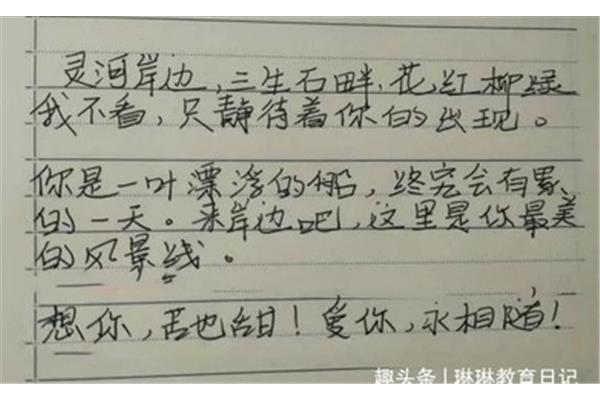 灵河岸边,三生石畔,花红柳绿
我不看,只静待着你的出现。
你是一叶漂浮的船,终究会有累
的一天。来岸边吧,这里是你最美
的风景线。
想你,苦也甜!爱你,永相随!
趣头条 | 琳琳教育日记